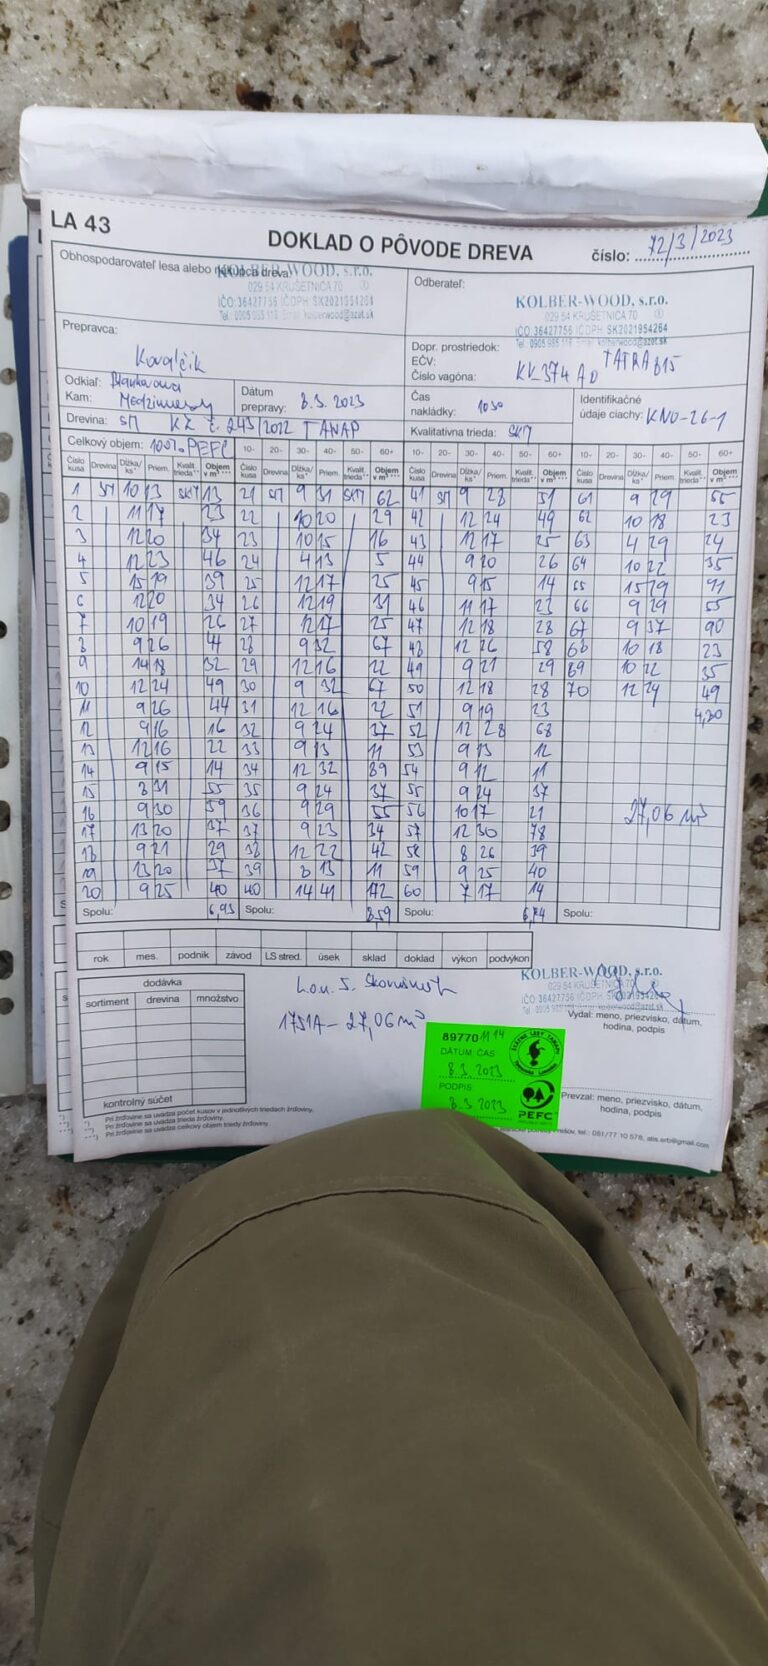 LA 43
DOKLAD O PÔVODE DREVA
číslo: 72/3/2023
Obhospodarovateľ lesa alebo nákupca dreva:
KOLBER-WOOD, s.r.o.
029 54 KRUŠETNICA 70
IČO: 36427756 IČDPH: SK2021954264
Odberateľ:
KOLBER-WOOD, s.r.o.
029 54 KRUŠETNICA 70
IČO: 36427756 IČDPH SK2021954264
Tel.: 0905 985 116 Email: kolberwood@azet.sk
Prepravca:
Kovalčik
Dopr. prostriedok: TATRA 815
EČV: KK 374 AD
Číslo vagóna:
Odkiaľ:
Kam:
Dátum prepravy: 8.3.2023
Čas nakládky: 1030
Identifikačné údaje ciachy: KNO-26-1
Drevina: SM KZ č. 243/2022 TANAP
Kvalitatívna trieda: SKM
Celkový objem: 100% PEFC
10- 20- 30- 40- 50- 60+ 10- 20- 30- 40- 50- 60+ 10- 20- 30- 40- 50- 60+
Číslo kusa Drevina Dĺžka/ks Priem. Kvalit. trieda Objem v m³
1 SM 10 13 SKM 13 21 SM 9 31 SKM 62 41 SM 9 28 51 61 9 29 55
2 11 17 23 22 10 20 29 42 12 24 49 62 10 18 23
3 12 20 34 23 10 15 16 43 12 17 25 63 4 29 24
4 12 23 46 24 4 13 5 44 9 20 26 64 10 22 35
5 15 19 39 25 12 17 25 45 9 15 14 65 15 29 91
6 12 20 34 26 12 19 31 46 11 17 23 66 9 29 55
7 10 19 26 27 12 17 25 47 12 18 28 67 9 37 90
8 9 26 44 28 9 32 67 48 12 26 58 68 10 18 23
9 14 18 32 29 12 16 22 49 9 21 29 69 10 22 35
10 12 24 49 30 9 32 67 50 12 18 28 70 12 24 49
11 9 26 44 31 12 16 22 51 9 19 23 4,80
12 9 16 16 32 9 24 37 52 12 28 68
13 12 16 22 33 9 13 11 53 9 13 12
14 9 15 14 34 12 32 89 54 9 12 11
15 8 31 55 35 9 24 37 55 9 24 37
16 9 30 59 36 9 29 55 56 10 17 21 27,06 m³
17 13 20 37 37 9 23 34 57 12 30 78
18 9 21 29 38 12 22 42 58 8 26 39
19 13 20 37 39 8 13 11 59 9 25 40
20 9 25 40 40 14 41 172 60 7 17 14
Spolu: 6,93 Spolu: 8,59 Spolu: 6,74 Spolu:
rok mes. podnik závod LS stred. úsek sklad doklad výkon podvýkon
dodávka
sortiment drevina množstvo
kontrolný súčet
1751A - 27,06 m³
KOLBER-WOOD, s.r.o.
029 54 KRUŠETNICA 70
IČO: 36427756 IČDPH
Vydal: meno, priezvisko, dátum,
hodina, podpis
89770 1114
DÁTUM ČAS
8.3.2023
PODPIS:
8.3.2023
ŠTÁTNE LESY TANAPU
PEFC
Prevzal: meno, priezvisko, dátum,
hodina, podpis
Pri žrďovine sa uvádza počet kusov v jednotlivých triedach žrďoviny.
Pri žrďovine sa uvádza trieda žrďoviny.
Pri žrďovine sa uvádza celkový objem triedy žrďoviny.
tel.: 051/77 10 578, atis.erb@gmail.com